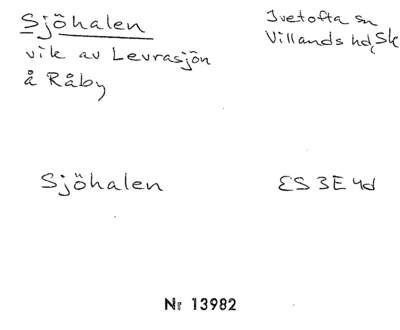 Sjöhalen
vik av Levrasjön
å Råby
Ivetofta sn
Villands hd, Sk
Sjöhalen
ES 3E 4d
Nr 13982